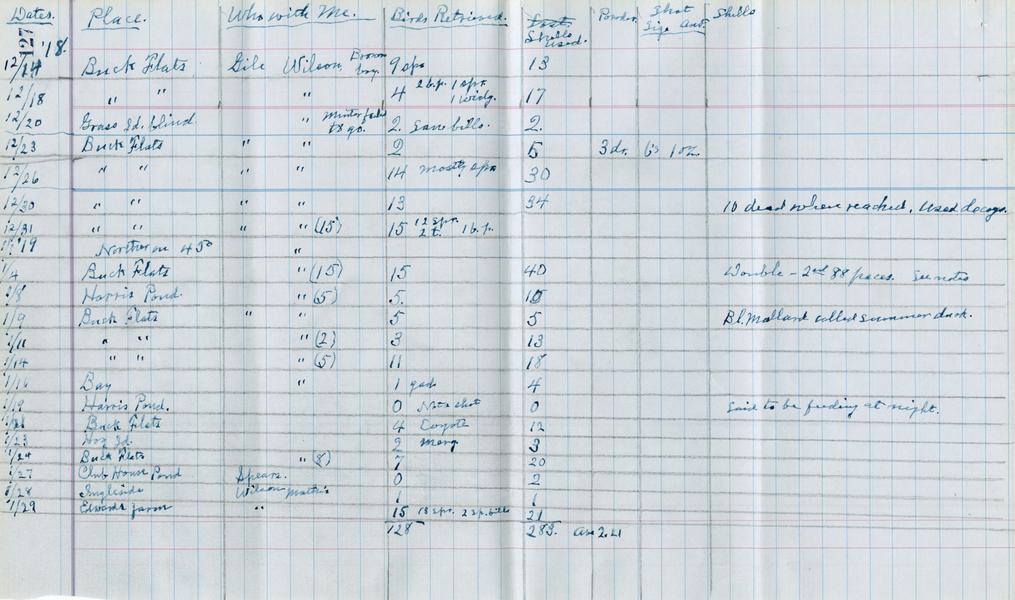 Dates. Place. Who with Me. Birds Retrieved. Shells used. Powder Shot Size Amt Shells
127
'18.
12/14 Buck Flats Gile Wilson, 9 spr 13
12/18 " " " 4 2 b.p. 1 spr. 1 widg. 17
12/20 Grass Id. blind " 2. Same bills. 2.
12/23 Buck Flats " " 2 5 3 dr. 6's 1 oz
12/26 " " " 14 mostly spr 30
12/30 " " " 13 34 10 dead when reached, Used decoys.
12/31 " " " " (15) 15 12 spr. 2 t. 1 b.p.
'19 Norther on 45° "
1/4 Buck Flats " (15) 15 40 Double - 2nd 88 paces. See notes
1/8 Harris Pond. " (5) 5. 15
1/9 Buck Flats " " 5 5 Bl. Mallard called summer duck.
1/11 " " " (2) 3 13
1/14 " " " (5) 11 18
1/16 Bay " 1 gad 4
1/19 Harris Pond. 0 Not a shot 0 Said to be feeding at night.
1/21 Buck Flats 4 Coyote 12
1/23 Hog Id. 2 merg 3
1/24 Buck Flats " (8) 7 20
1/27 Club House Pond Spears. 0 2
1/28 Ingleside Wilson Mathis 1 1
1/29 Edwards farm " 15 13 spr. 2 sp. bills 21
128 283. Ave 2.21